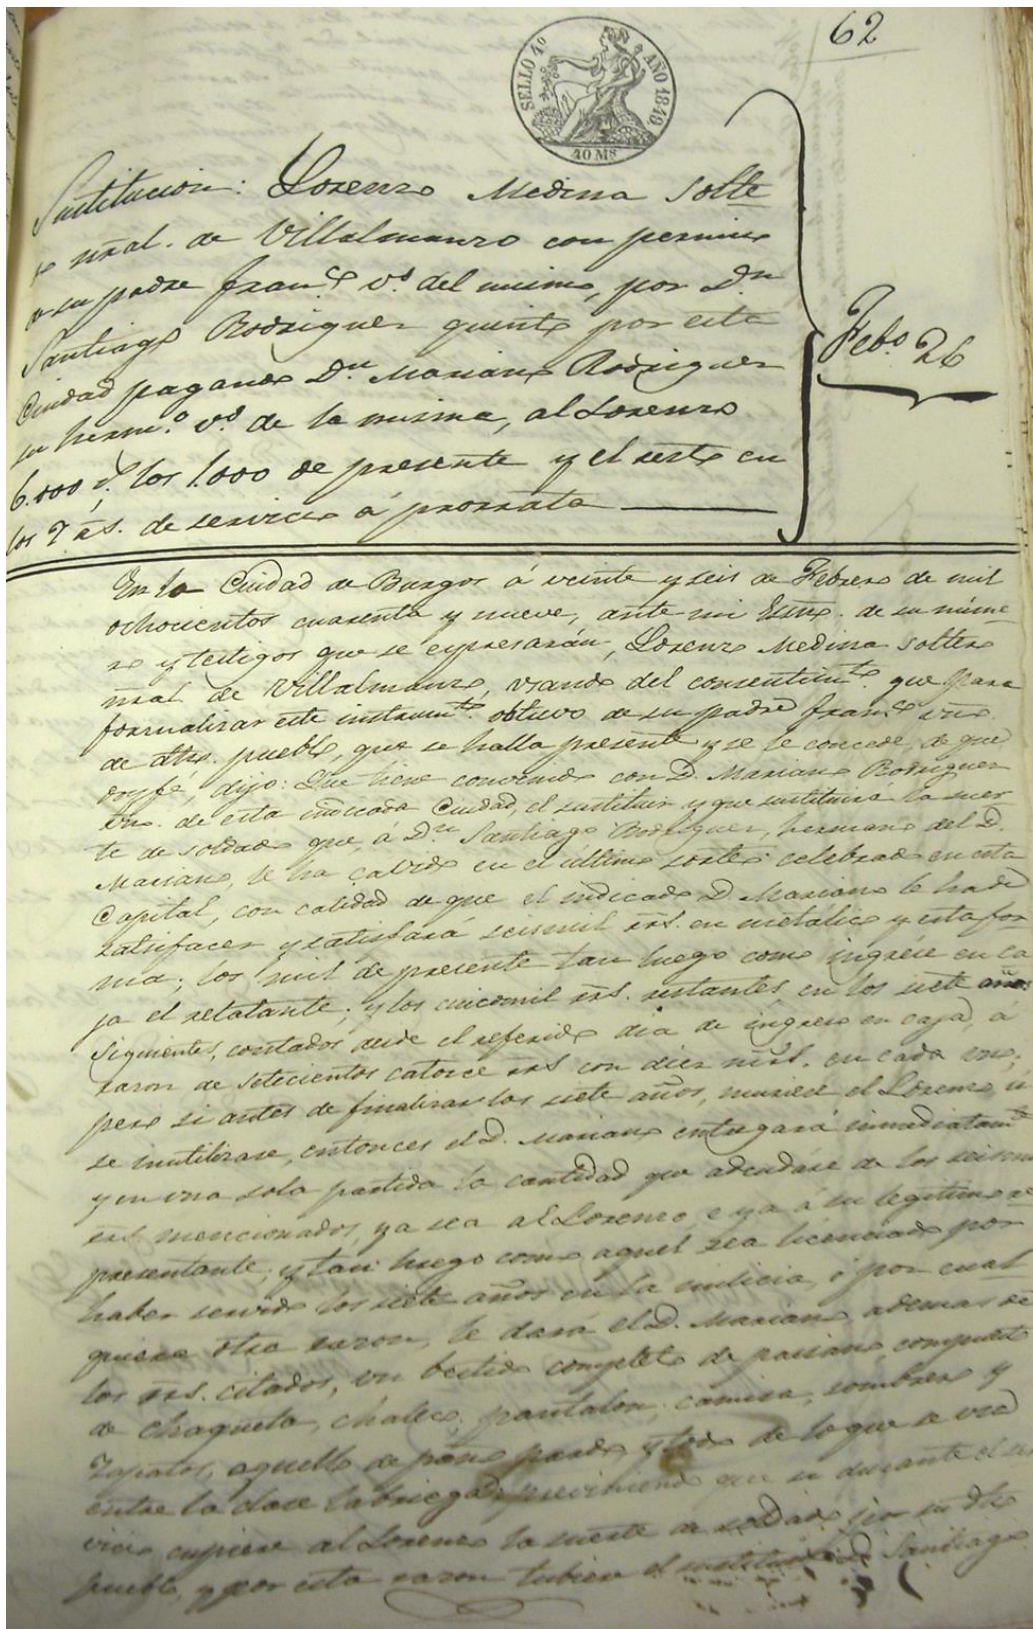 62
SELLO 4º AÑO 1849.
40 Ms
Sustitucion: Lorenzo Medina solte
ro nral. de Villalmanzo con permiso
de su padre Franco. vo. del mismo, por Dn
Santiago Rodriguez quinto por esta
Ciudad pagando Dn. Mariano Rodriguez
su hermo. vo. de la misma, al Lorenzo
6.000 rs. los 1.000 de presente y el resto en
los 7 as. de servicio á prorrata
Febo. 26
En la Ciudad de Burgos á veinte y seis de Febrero de mil
ochocientos cuarenta y nueve, ante mi Essno. de su núme
ro y testigos que se espresarán, Lorenzo Medina soltero
nral. de Villalmanzo, usando del consentimto. que para
formalizar este instrumto. obtuvo de su padre Franco. vno.
de dho. pueblo, que se halla presente y se le concede, de que
doy fé, dijo: Que tiene convenido con D. Mariano Rodriguez
vno. de esta indicada Ciudad, el sustituir y que sustituirá la suer
te de soldado que, á Dn. Santiago Rodriguez, hermano del D.
Mariano, le ha cabido en el último sorteo celebrado en esta
Capital, con calidad de que el indicado D. Mariano le hade
satisfacer y satisfará seismil rrs. en metalico y esta for
ma; los mil de presente tan luego como ingrese en ca
ja el relatante; y los cincomil rrs. restantes, en los siete años
siguientes, contados desde el referido dia de ingreso en caja, a
razon de setecientos catorce rrs con diez mrs. en cada uno;
pero si antes de finalizar los siete años, muriese el Lorenzo, ú
se inutilizase, entonces el D. Mariano entregará inmediatamte.
y en una sola partida la cantidad que adeudase de los seismil
rrs mencionados, ya sea al Lorenzo, o ya á su legitimo re
presentante; y tan luego como aquel sea licenciado por
haber servido los siete años en la milicia, ó por cual
quiera otra razon, le dará el D. Mariano ademas de
los rrs. citados, un bestido completo de paisano, compuesto
de chaqueta, chaleco, pantalon, camisa, sombrero y
zapatos, aquello de paño pardo, y todo de lo que se usa
entre la clase labriega; previniendo que si durante el ser
vicio cupiere al Lorenzo la suerte de soldado por su dho.
pueblo, y por esta razon tubiere el sustituido D. Santiago